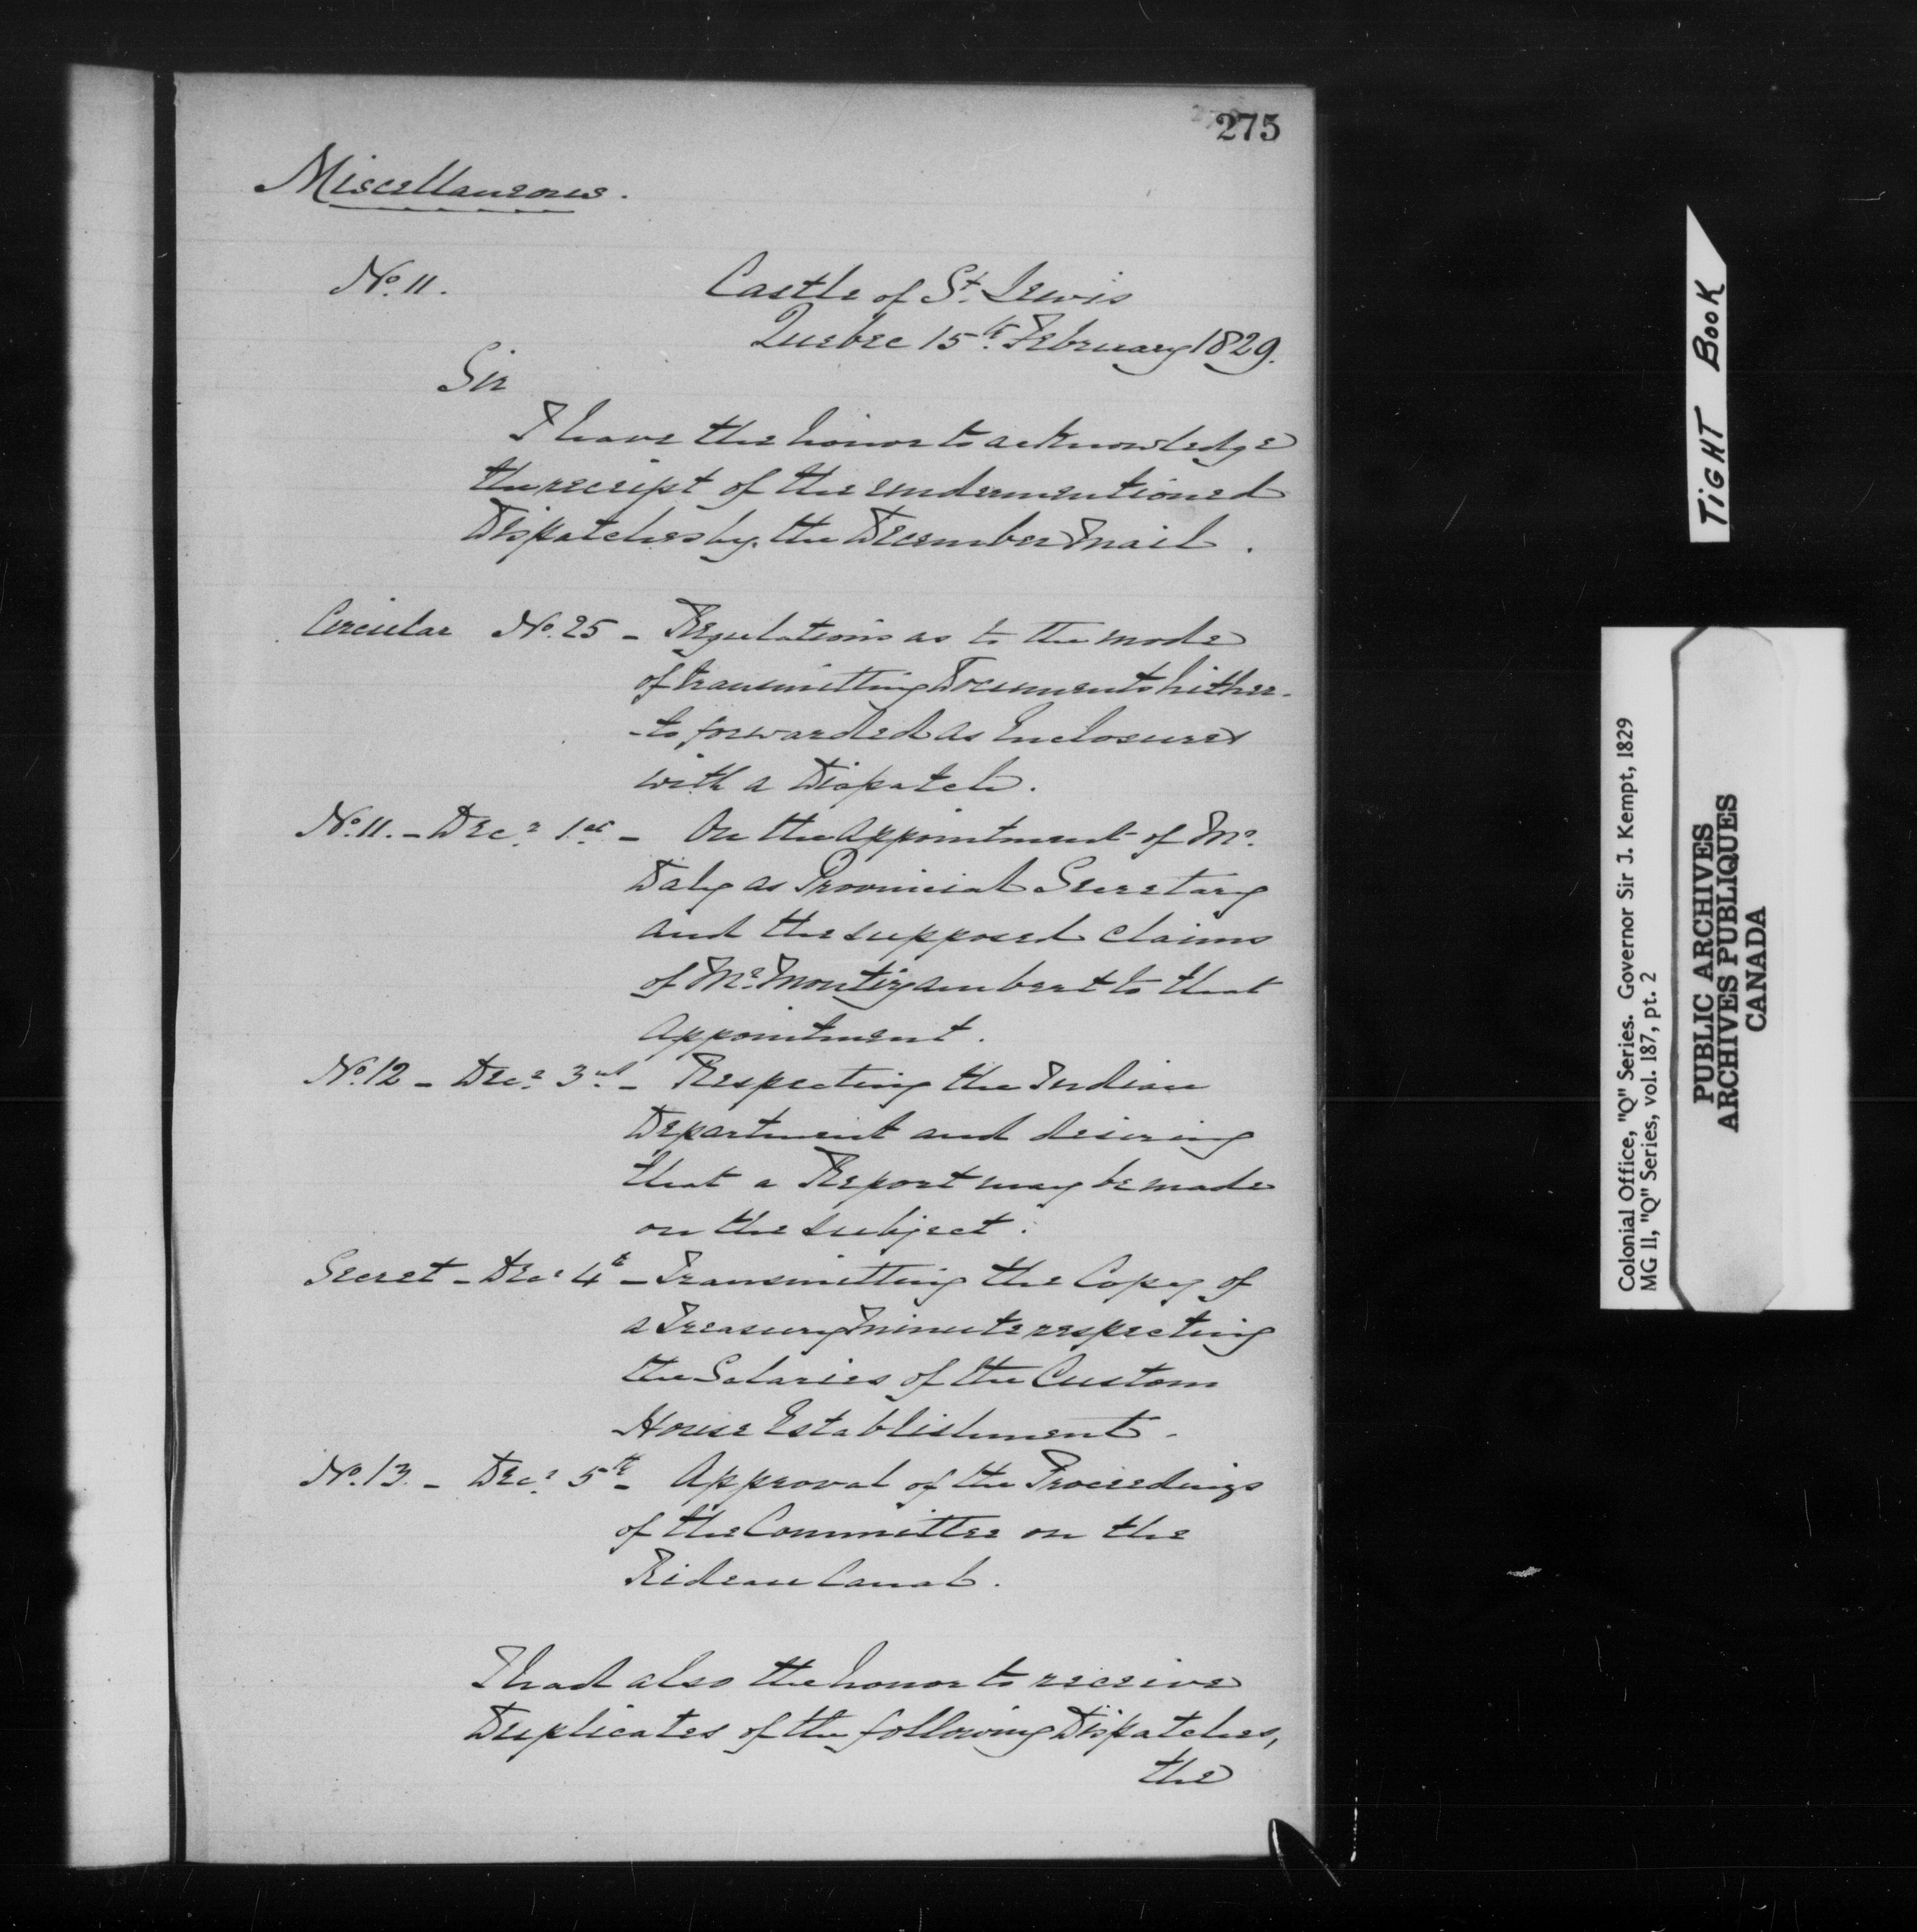 275
Miscellaneous.
No. 11. Castle of St. Lewis
Quebec 15th February 1829.
Sir
I have the honor to acknowledge
the receipt of the undermentioned
Dispatches by the December Mail.
Circular No. 25 - Regulations as to the mode
of transmitting Documents hither-
-to forwarded as Enclosures
with a Dispatch.
No. 11. - Decr. 1st - On the Appointment of Mr.
Daly as Provincial Secretary
and the supposed claims
of Mr. Montizambert to that
Appointment.
No. 12 - Decr. 3rd - Respecting the Indian
Department and desiring
that a Report may be made
on the subject.
Secret - Decr 4th - Transmitting the Copy of
a Treasury Minute respecting
the Salaries of the Custom
House Establishment.
No. 13. - Decr. 5th - Approval of the Proceedings
of the Committee on the
Rideau Canal.
I had also the honor to receive
Duplicates of the following Dispatches,
the
TIGHT BOOK
Colonial Office, "Q" Series. Governor Sir J. Kempt, 1829
MG 11, "Q" Series, vol. 187, pt. 2
PUBLIC ARCHIVES
ARCHIVES PUBLIQUES
CANADA